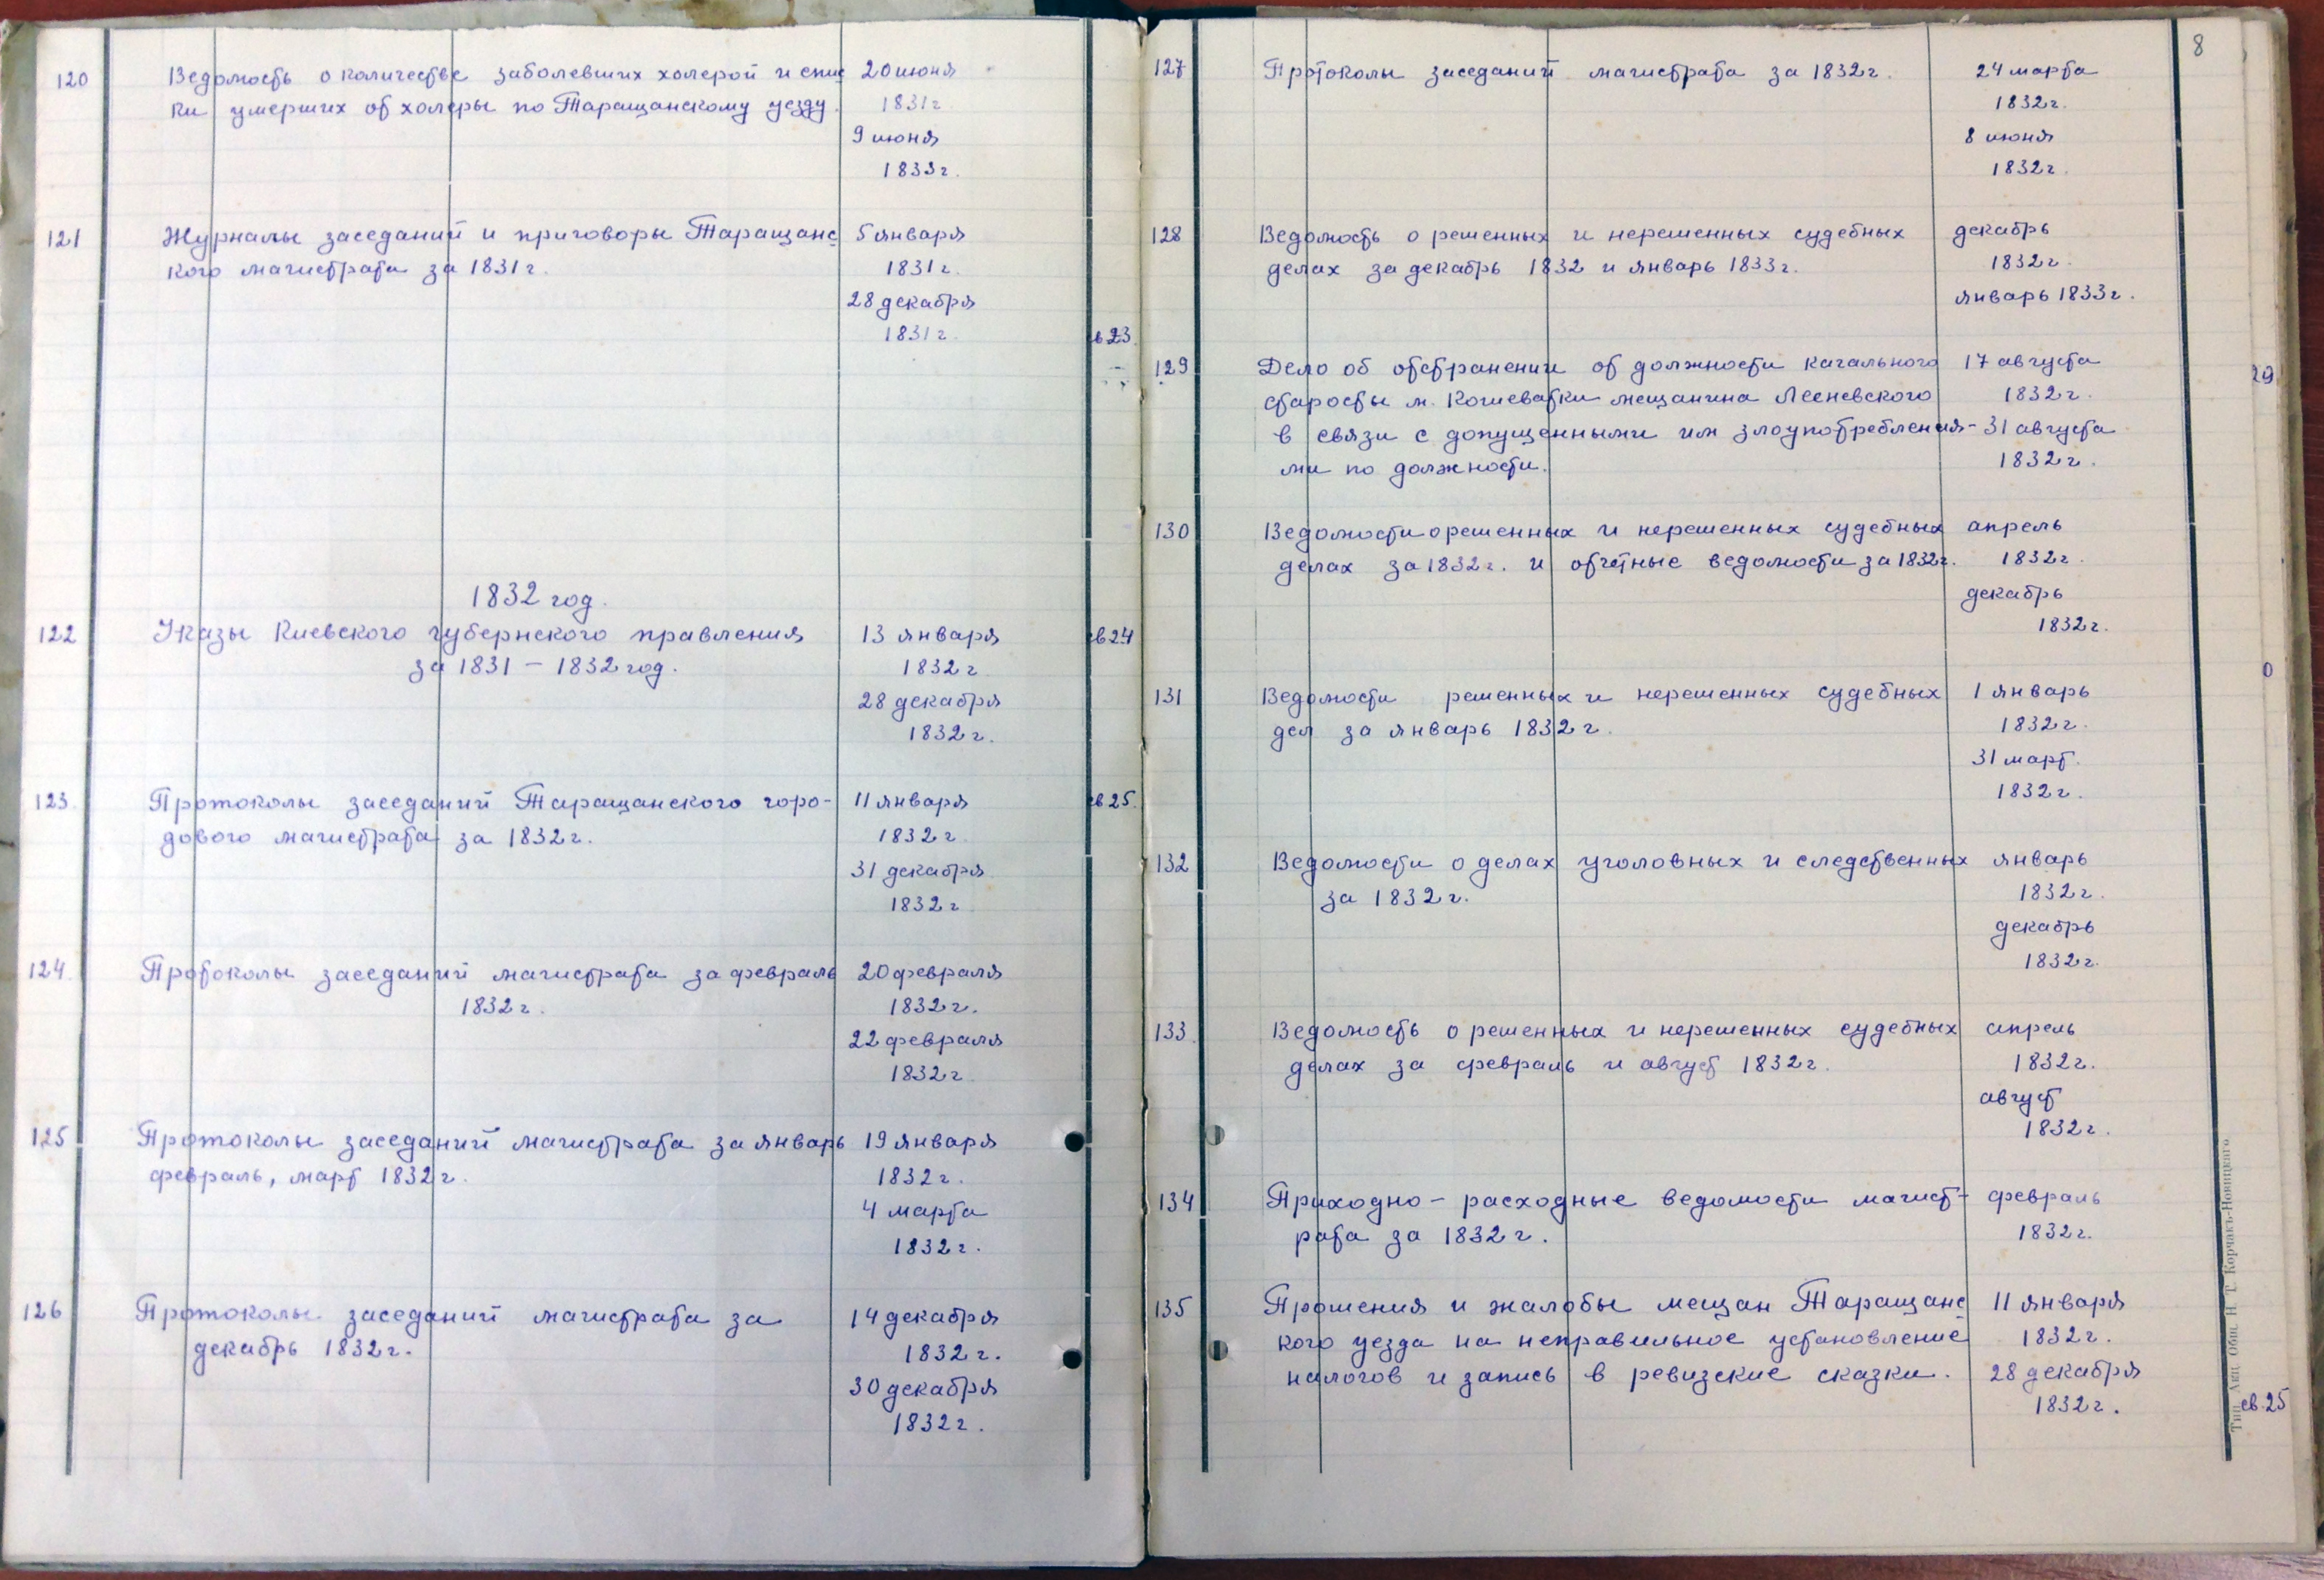 120 Ведомость о количестве заболевших холерой и спис 20 июня
ки умерших от холеры по Таращанскому уезду. 1831г
9 июня
1833г.
121 Журналы заседаний и приговоры Таращанс 5 января
кого магистрата за 1831г. 1831г.
28 декабря
1831г. св 23.
1832 год.
122 Указы Киевского губернского правления 13 января св 24
за 1831 – 1832 год. 1832г
28 декабря
1832г.
123. Протоколы заседаний Таращанского горо- 11 января св 25.
дового магистрата за 1832г. 1832г
31 декабря
1832г
124. Протоколы заседаний магистрата за февраль 20 февраля
1832г. 1832г.
22 февраля
1832г
125 Протоколы заседаний магистрата за январь 19 января
февраль, март 1832г. 1832г.
4 марта
1832г.
126 Протоколы заседаний магистрата за 14 декабря
декабрь 1832г. 1832г.
30 декабря
1832г.
8
127 Протоколы заседаний магистрата за 1832г. 24 марта
1832г.
8 июня
1832г.
128 Ведомость о решенных и нерешенных судебных декабрь
делах за декабрь 1832 и январь 1833г. 1832г.
январь 1833г.
129 Дело об отстранении от должности кагального 17 августа 29
старосты м. Кошеватки мещанина Лееневского 1832г.
в связи с допущенными им злоупотребления- 31 августа
ми по должности. 1832г.
130 Ведомости о решенных и нерешенных судебных апрель
делах за 1832г. и отчетные ведомости за 1832г. 1832г.
декабрь
1832г.
0
131 Ведомости решенных и нерешенных судебных 1 январь
дел за январь 1832г. 1832г.
31 март.
1832г.
132 Ведомости о делах уголовных и следственных январь
за 1832г. 1832г.
декабрь
1832г.
133 Ведомость о решенных и нерешенных судебных апрель
делах за февраль и август 1832г. 1832г.
август
1832г.
134 Приходно – расходные ведомости магист- февраль
рата за 1832г. 1832г.
135 Прошения и жалобы мещан Таращанс 11 января
кого уезда на неправильное установление 1832г.
налогов и запись в ревизские сказки. 28 декабря
1832г. св.25
Тип. Акц. Общ. Н. Т. Корчакъ-Новицкаго.